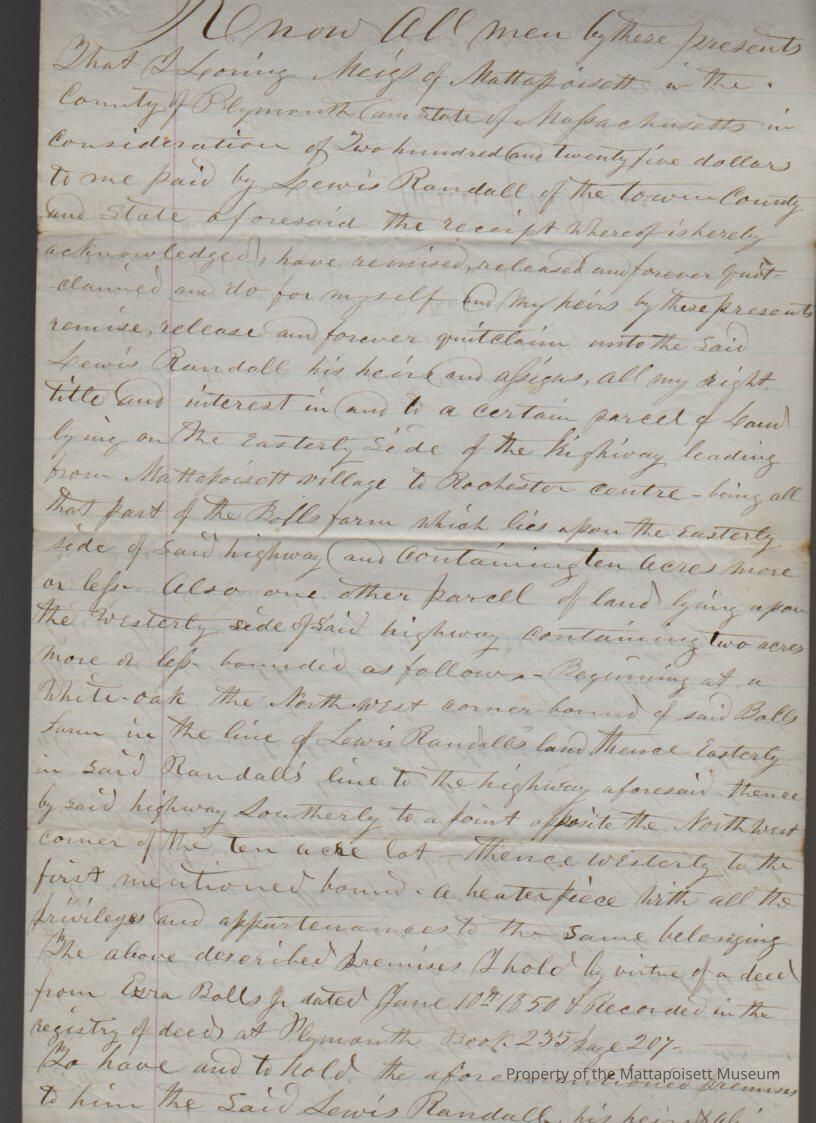 Know All men by these presents
That I Loring Meigs of Mattapoisett in the
County of Plymouth and State of Massachusetts in
consideration of Two hundred and twenty five dollars
to me paid by Lewis Randall of the town County
and State aforesaid the receipt whereof is hereby
acknowledged, have remised, released and forever Quit-
claimed and do for myself and my heirs by these presents
remise, release and forever quitclaim unto the said
Lewis Randall his heirs and assigns, all my right
title and interest in and to a certain parcel of Land
lying on the Easterly Side of the highway leading
from Mattapoisett village to Rochester centre - being all
that part of the Bolls farm which lies upon the Easterly
side of Said highway and Containing ten acres more
or less. Also one other parcell of land lying upon
the Westerly side of Said highway containing two acres
more or less - bounded as follows - Beginning at a
White-oak the North-west corner bound of said Bolls
Farm in the line of Lewis Randall's land thence Easterly
in said Randall's line to the highway aforesaid - thence
by said highway Southerly to a point opposite the North West
corner of the ten acre lot - Thence westerly to the
first mentioned bound - a heater piece With all the
privileges and appurtenances to the same belonging
The above described premises I hold by virtue of a deed
from Ezra Bolls Jr dated June 10th 1850 & Recorded in the
registry of deeds at Plymouth Book 235 page 207-
To have and to hold the aforementioned premises
to him the Said Lewis Randall, his heirs &
Property of the Mattapoisett Museum